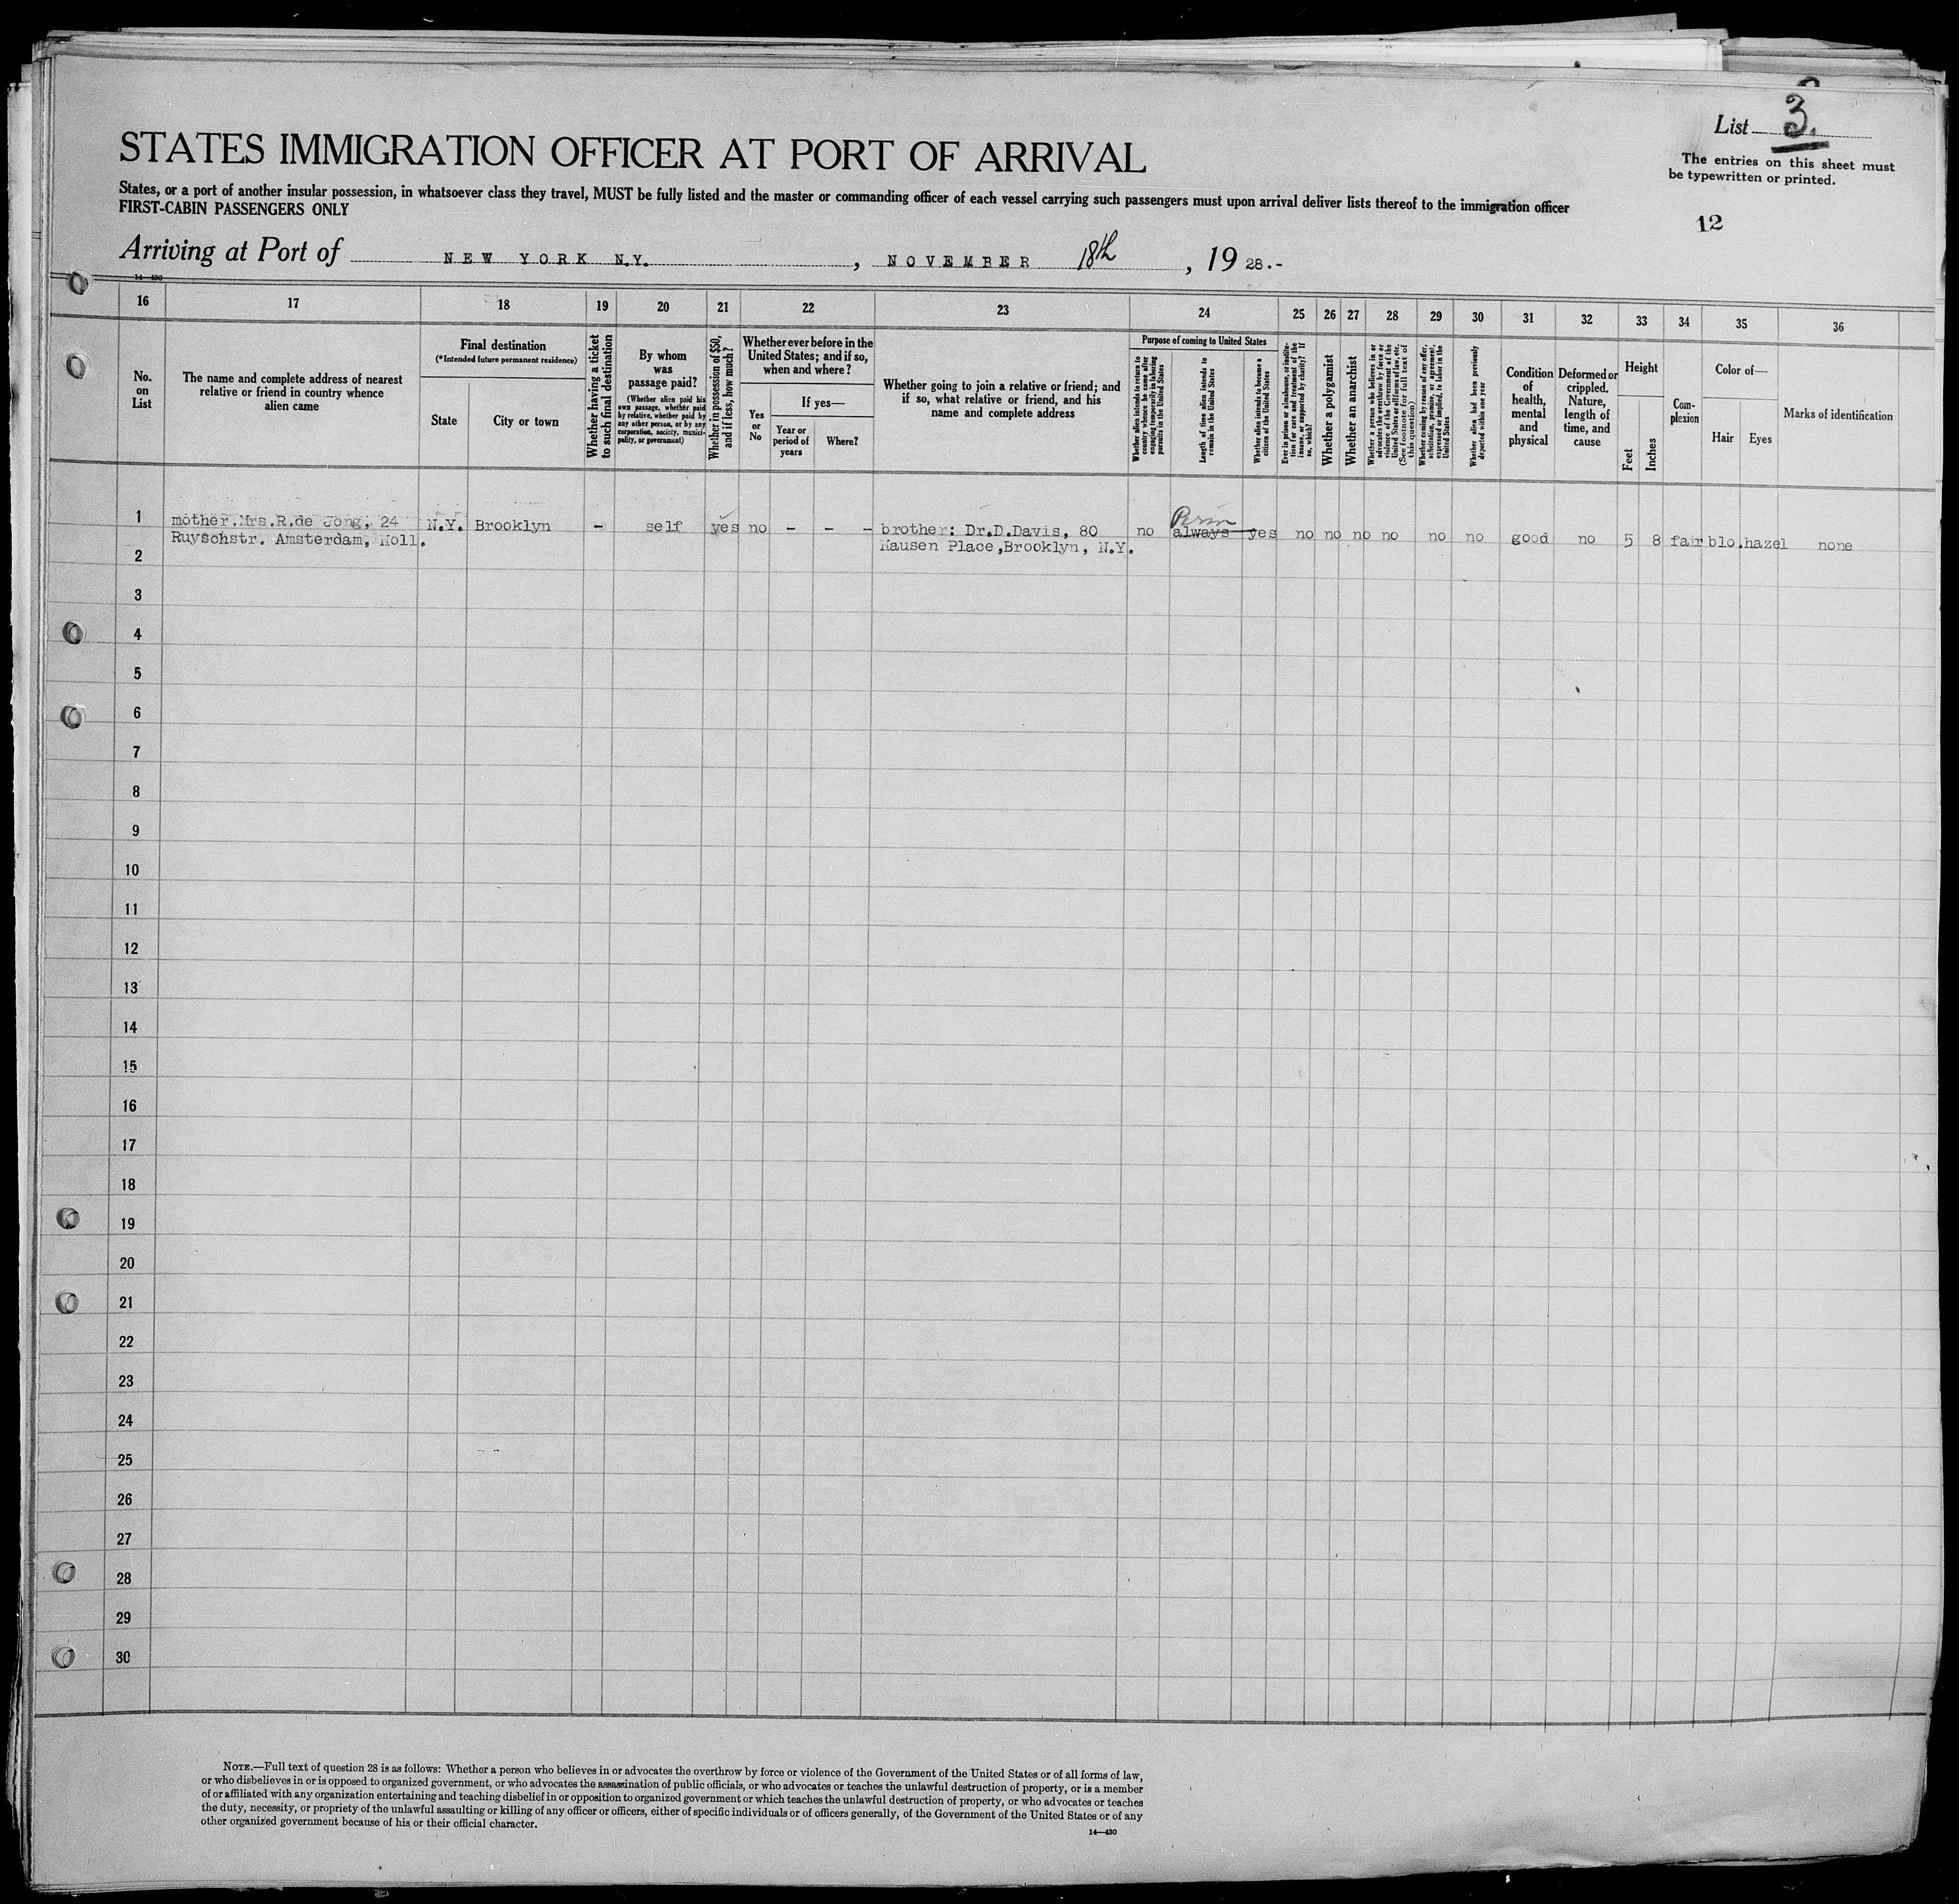 List 3.
The entries on this sheet must
be typewritten or printed.
12
STATES IMMIGRATION OFFICER AT PORT OF ARRIVAL
States, or a port of another insular possession, in whatsoever class they travel, MUST be fully listed and the master or commanding officer of each vessel carrying such passengers must upon arrival deliver lists thereof to the immigration officer
FIRST-CABIN PASSENGERS ONLY
Arriving at Port of NEW YORK N.Y. , NOVEMBER 18th , 19 28.-
14—430
16 17 18 19 20 21 22 23 24 25 26 27 28 29 30 31 32 33 34 35 36
No.
on
List
The name and complete address of nearest
relative or friend in country whence
alien came
Final destination
(*Intended future permanent residence)
State
City or town
Whether having a ticket
to such final destination
By whom
was
passage paid?
(Whether alien paid his
own passage, whether paid
by relative, whether paid by
any other person, or by any
corporation, society, munici-
pality, or government)
Whether in possession of $50,
and if less, how much?
Whether ever before in the
United States; and if so,
when and where?
Yes
or
No
If yes—
Year or
period of
years
Where?
Whether going to join a relative or friend; and
if so, what relative or friend, and his
name and complete address
Purpose of coming to United States
Whether alien intends to return to
country whence he came after
engaging temporarily in laboring
pursuits in the United States
Length of time alien intends to
remain in the United States
Whether alien intends to become a
citizen of the United States
Ever in prison or almshouse, or institu-
tion for care and treatment of the
insane, or supported by charity? If
so, which?
Whether a polygamist
Whether an anarchist
Whether a person who believes in or
advocates the overthrow by force or
violence of the Government of the
United States or all forms of law, etc.
(See footnote for full text of
this question)
Whether coming by reason of any offer,
solicitation, promise, or agreement,
expressed or implied, to labor in the
United States
Whether alien had been previously
deported within one year
Condition
of
health,
mental
and
physical
Deformed or
crippled.
Nature,
length of
time, and
cause
Height
Feet
Inches
Com-
plexion
Color of—
Hair
Eyes
Marks of identification
1 mother.Mrs.R.de Jong, 24 N.Y. Brooklyn - self yes no - - - brother: Dr.D.Davis, 80 no always yes no no no no no no good no 5 8 fair blo. hazel none
Ruyschstr. Amsterdam, Holl. Hausen Place,Brooklyn, N.Y.
2
3
4
5
6
7
8
9
10
11
12
13
14
15
16
17
18
19
20
21
22
23
24
25
26
27
28
29
30
NOTE.—Full text of question 28 is as follows: Whether a person who believes in or advocates the overthrow by force or violence of the Government of the United States or of all forms of law,
or who disbelieves in or is opposed to organized government, or who advocates the assassination of public officials, or who advocates or teaches the unlawful destruction of property, or is a member
of or affiliated with any organization entertaining and teaching disbelief in or opposition to organized government or which teaches the unlawful destruction of property, or who advocates or teaches
the duty, necessity, or propriety of the unlawful assaulting or killing of any officer or officers, either of specific individuals or of officers generally, of the Government of the United States or of any
other organized government because of his or their official character.
14—430